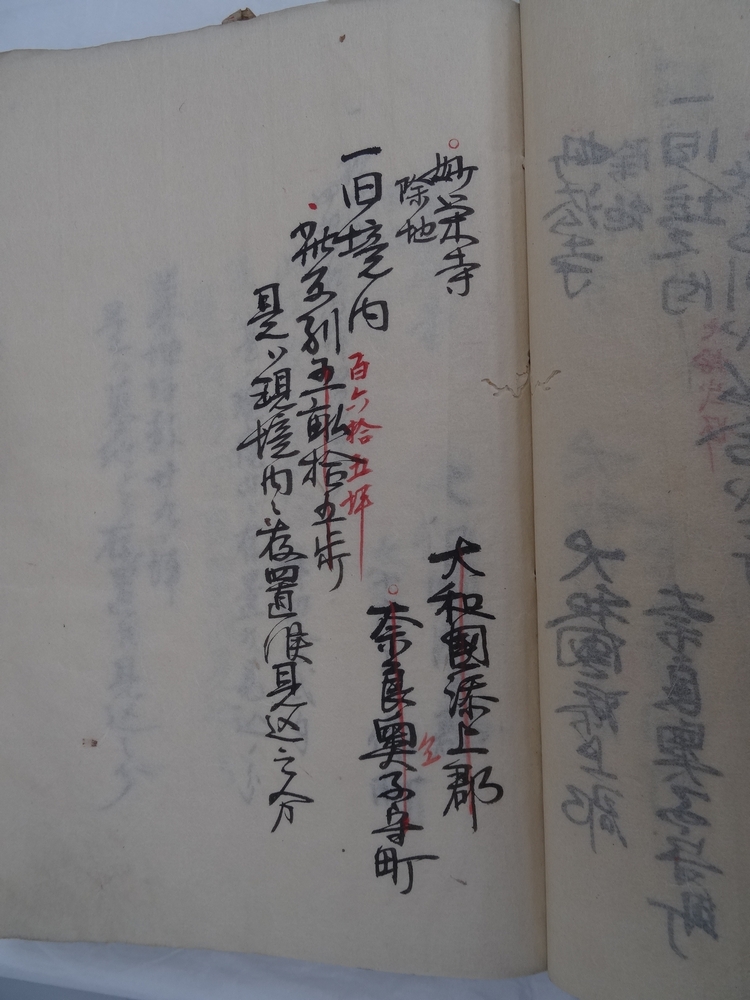 妙栄寺
大和國添上郡
除地
奈良奥子守町
一旧境内
百六拾五坪
此反別五畝拾五歩
是ハ現境内ニ差置候見込之分